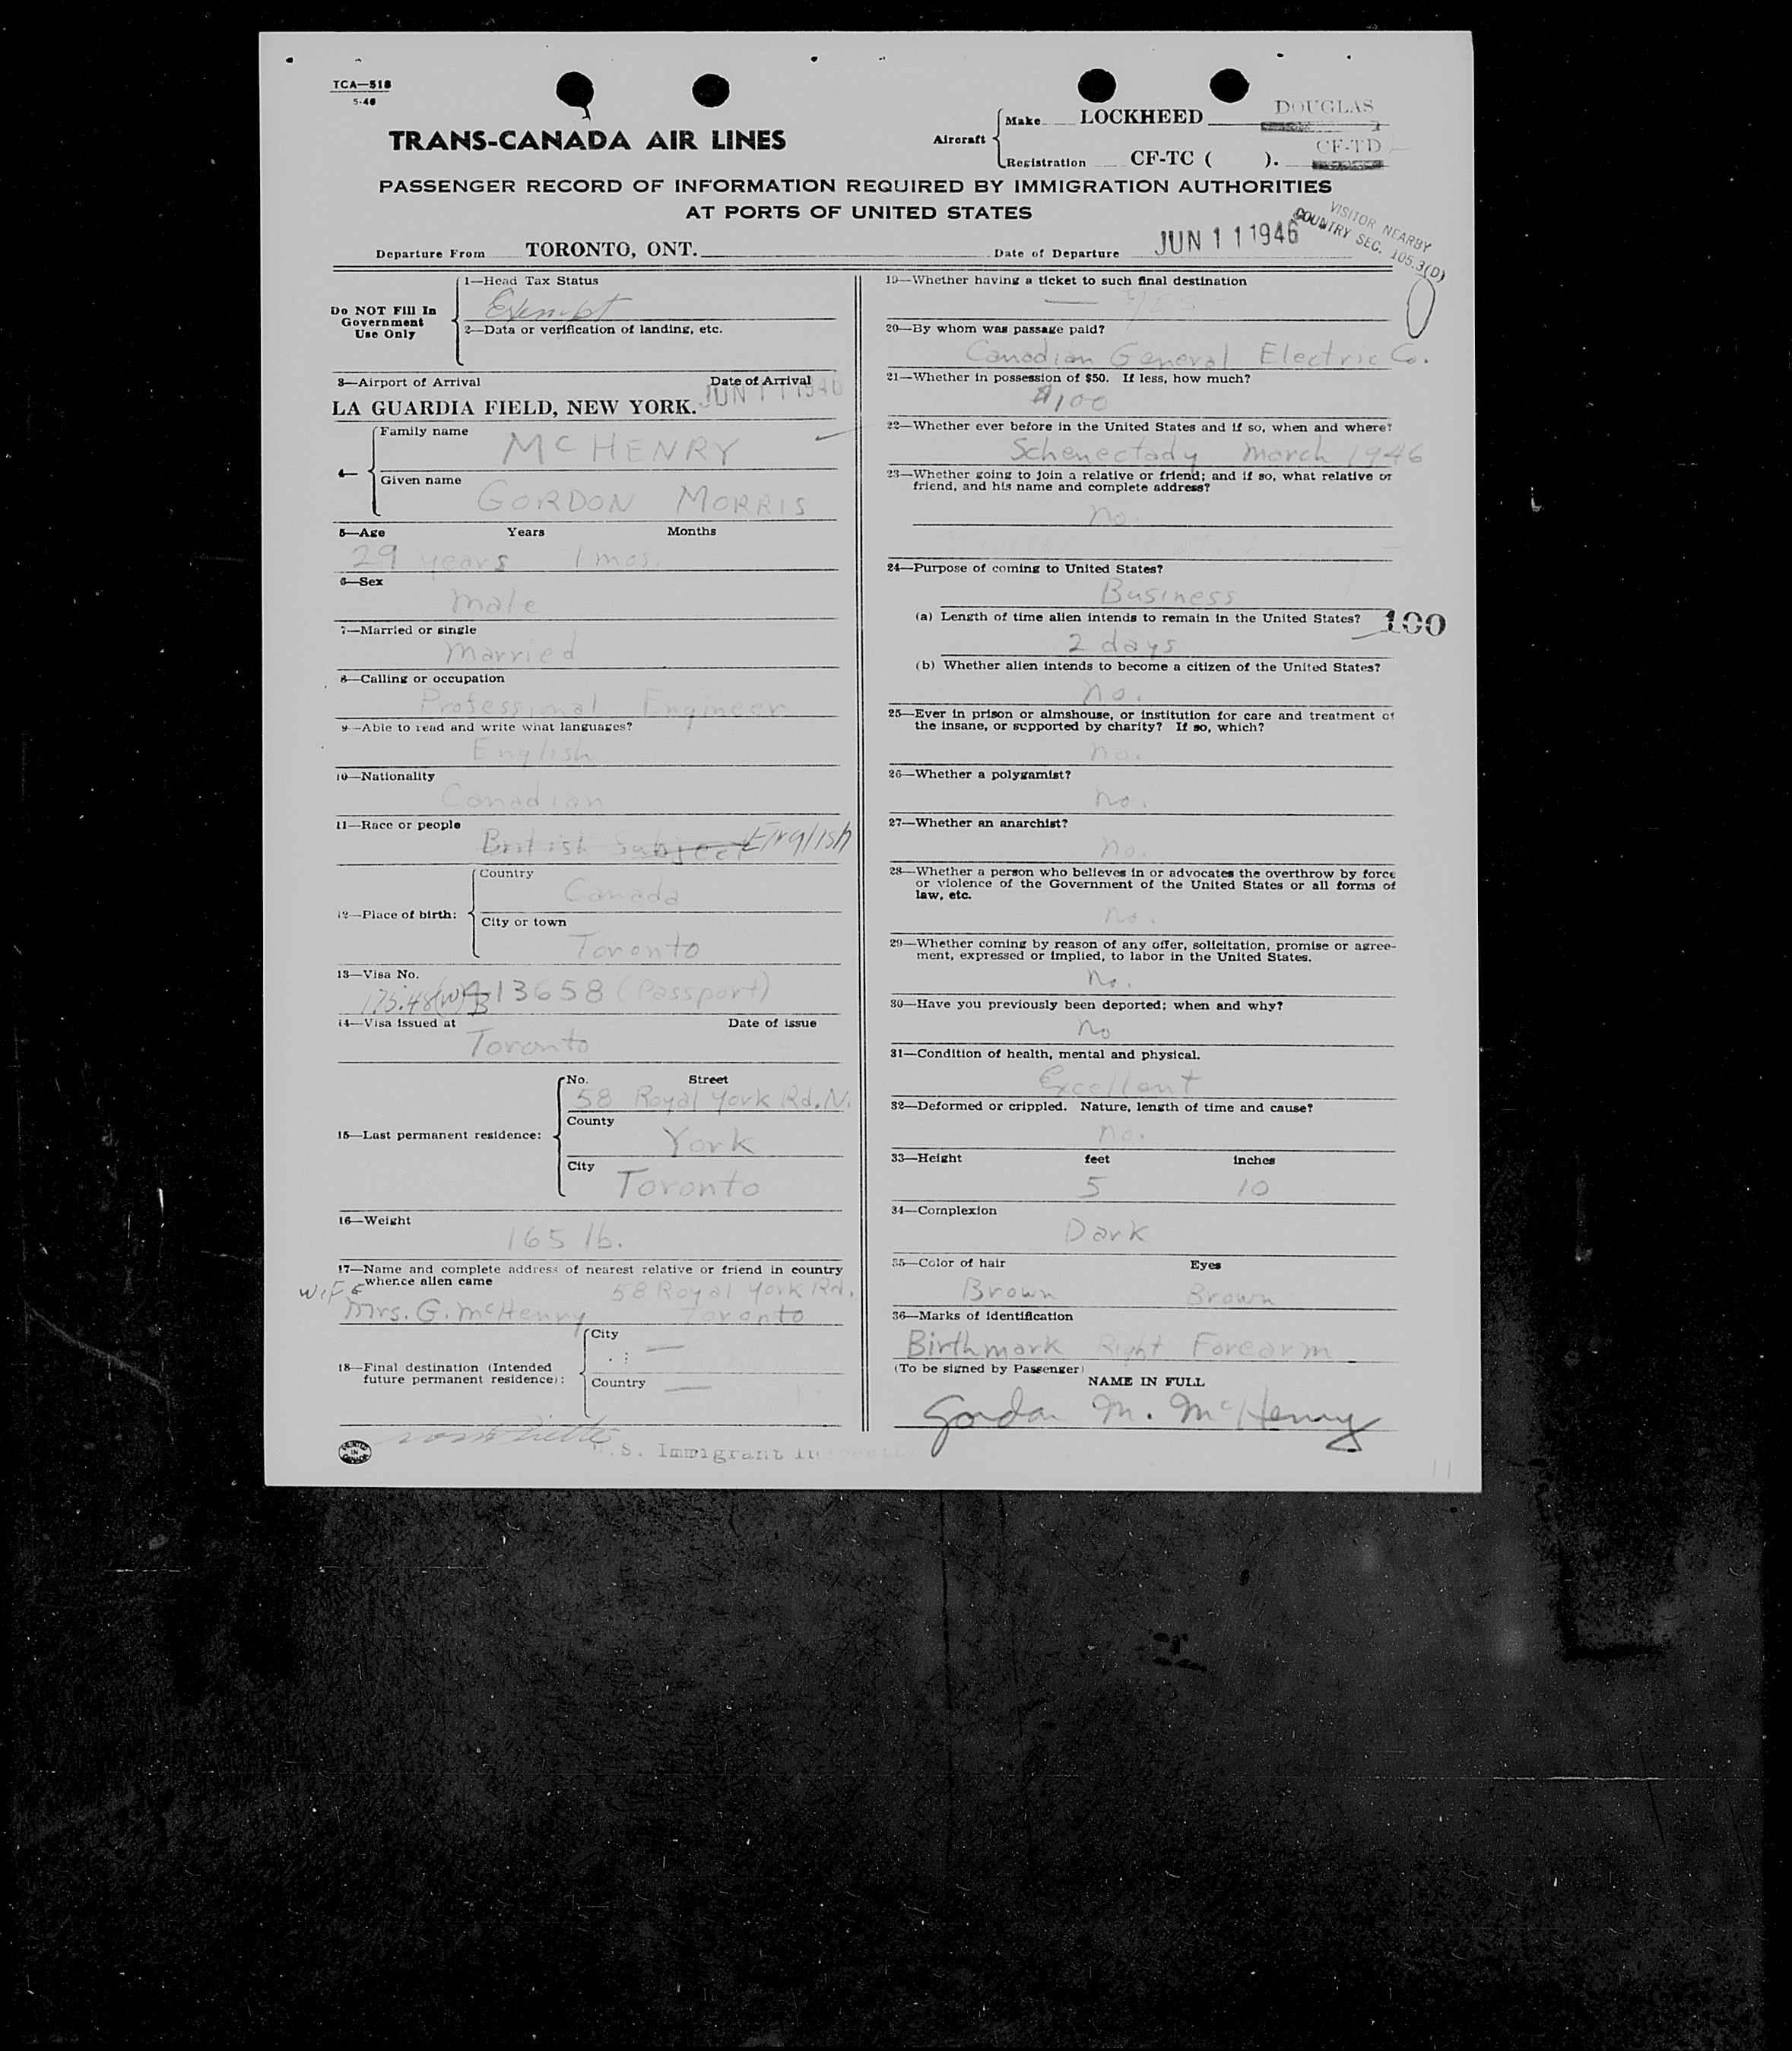 TCA—518
5-46
TRANS-CANADA AIR LINES
Aircraft
Make LOCKHEED DOUGLAS
Registration CF-TC ( ). CF-TD
PASSENGER RECORD OF INFORMATION REQUIRED BY IMMIGRATION AUTHORITIES
AT PORTS OF UNITED STATES
VISITOR NEARBY
COUNTRY SEC. 105.3(D)
Departure From TORONTO, ONT. Date of Departure JUN 11 1946
Do NOT Fill In
Government
Use Only
1—Head Tax Status
Exempt
2—Data or verification of landing, etc.
3—Airport of Arrival Date of Arrival
LA GUARDIA FIELD, NEW YORK. JUN 11 1946
4—
Family name
MCHENRY
Given name
GORDON MORRIS
5—Age Years Months
29 years 1 mos.
6—Sex
Male
7—Married or single
Married
8—Calling or occupation
Professional Engineer
9—Able to read and write what languages?
English
10—Nationality
Canadian
11—Race or people
British Subject English
12—Place of birth:
Country
Canada
City or town
Toronto
13—Visa No.
175.48(W) 13658 (Passport)
B
14—Visa issued at Date of issue
Toronto
15—Last permanent residence:
No. Street
58 Royal York Rd. N.
County
York
City
Toronto
16—Weight
165 lb.
17—Name and complete address of nearest relative or friend in country
whence alien came
Wife 58 Royal York Rd.
Mrs. G. McHenry Toronto
18—Final destination (Intended
future permanent residence):
City
—
Country
—
U.S. Immigrant Inspector
PRINTED
IN
CANADA
19—Whether having a ticket to such final destination
— YES
20—By whom was passage paid?
Canadian General Electric Co.
21—Whether in possession of $50. If less, how much?
$100
22—Whether ever before in the United States and if so, when and where?
Schenectady March 1946
23—Whether going to join a relative or friend; and if so, what relative or
friend, and his name and complete address?
no.
24—Purpose of coming to United States?
Business
(a) Length of time alien intends to remain in the United States? 100
2 days
(b) Whether alien intends to become a citizen of the United States?
no.
25—Ever in prison or almshouse, or institution for care and treatment of
the insane, or supported by charity? If so, which?
no.
26—Whether a polygamist?
no.
27—Whether an anarchist?
no.
28—Whether a person who believes in or advocates the overthrow by force
or violence of the Government of the United States or all forms of
law, etc.
no.
29—Whether coming by reason of any offer, solicitation, promise or agree-
ment, expressed or implied, to labor in the United States.
No.
30—Have you previously been deported; when and why?
no
31—Condition of health, mental and physical.
Excellent
32—Deformed or crippled. Nature, length of time and cause?
no.
33—Height feet inches
5 10
34—Complexion
Dark
35—Color of hair Eyes
Brown Brown
36—Marks of identification
Birthmark Right Forearm
(To be signed by Passenger)
NAME IN FULL
Gordon M. McHenry
11